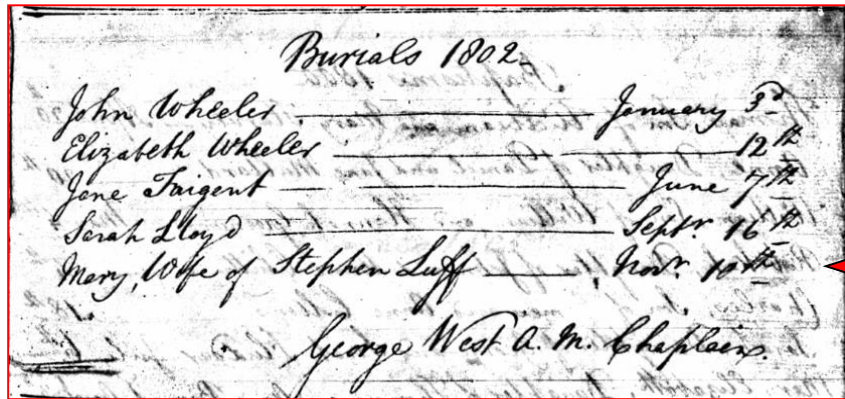 Burials 1802.
John Wheeler. January 3d
Elizabeth Wheeler 12th
Jane Targent June 7th
Sarah Lloyd Septr. 16th
Mary, Wife of Stephen Luff Novr. 10th
George West A. M. Chaplain.